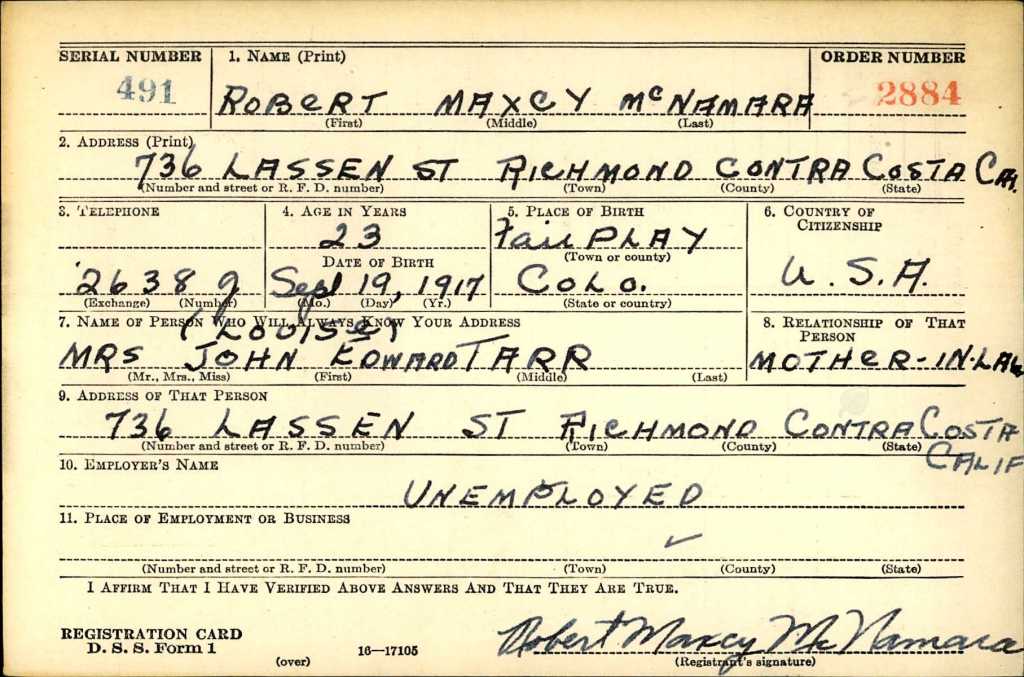 SERIAL NUMBER 1. NAME (Print) ORDER NUMBER
491 ROBERT MAXCY McNAMARA 2884
(First) (Middle) (Last)
2. ADDRESS (Print)
736 LASSEN ST RICHMOND CONTRA COSTA CAL.
(Number and street or R. F. D. number) (Town) (County) (State)
3. TELEPHONE 4. AGE IN YEARS 5. PLACE OF BIRTH 6. COUNTRY OF CITIZENSHIP
23 Fair PLAY
DATE OF BIRTH (Town or county)
2638 J Sept 19, 1917 COLO. U.S.A.
(Exchange) (Number) (Mo.) (Day) (Yr.) (State or country)
7. NAME OF PERSON WHO WILL ALWAYS KNOW YOUR ADDRESS 8. RELATIONSHIP OF THAT PERSON
(LOUISE)
MRS JOHN EDWARD TARR MOTHER-IN-LAW
(Mr., Mrs., Miss) (First) (Middle) (Last)
9. ADDRESS OF THAT PERSON
736 LASSEN ST RICHMOND CONTRA COSTA
(Number and street or R. F. D. number) (Town) (County) (State) CALIF
10. EMPLOYER'S NAME
UNEMPLOYED
11. PLACE OF EMPLOYMENT OR BUSINESS
(Number and street or R. F. D. number) (Town) (County) (State)
I AFFIRM THAT I HAVE VERIFIED ABOVE ANSWERS AND THAT THEY ARE TRUE.
REGISTRATION CARD Robert Maxcy McNamara
D. S. S. Form 1 (over) 16—17105 (Registrant's signature)